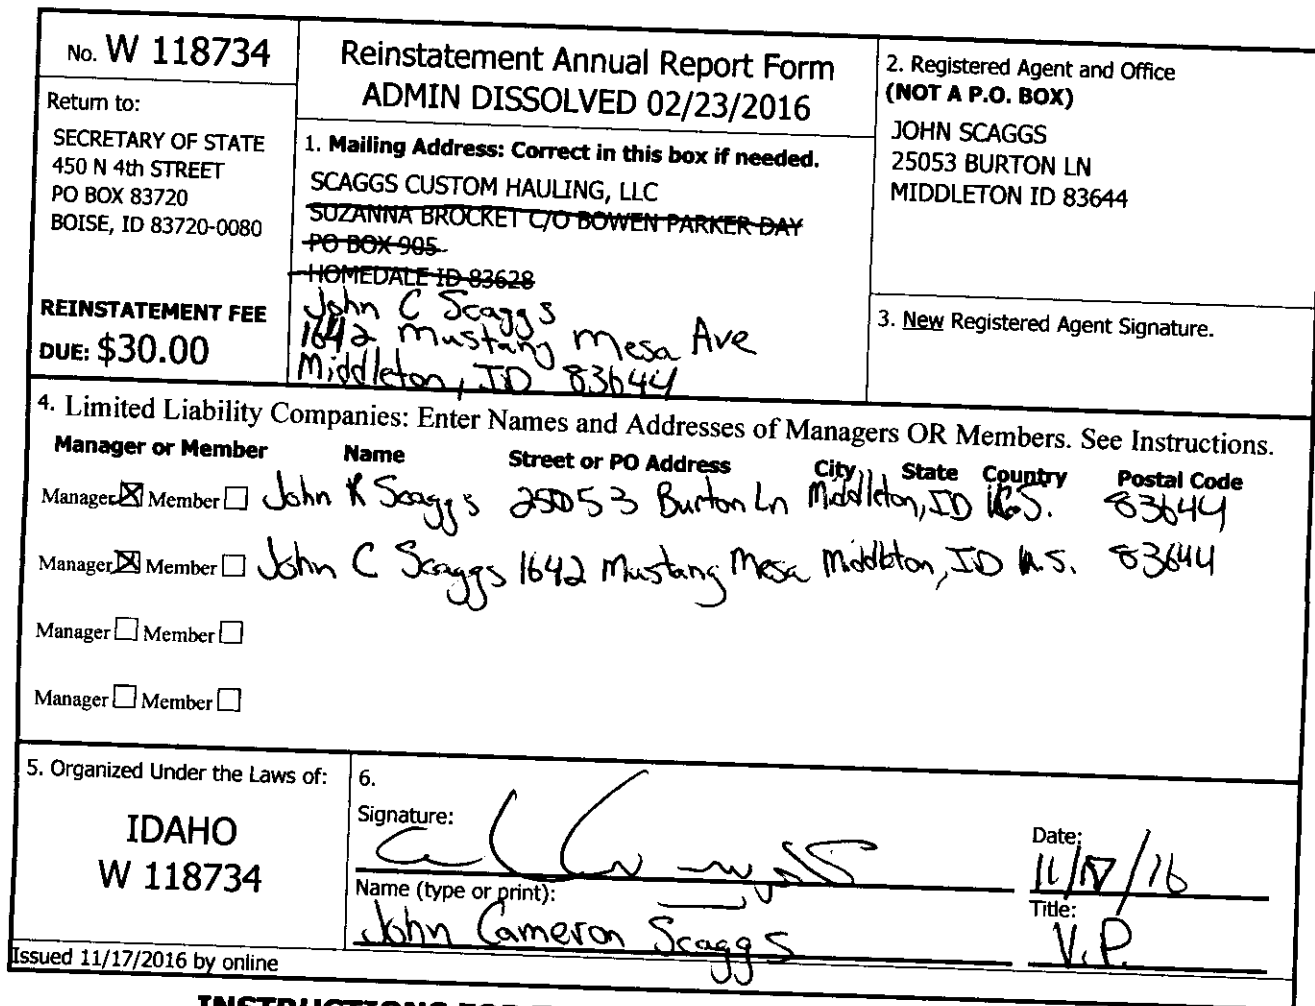 No. W 118734
Return to:
SECRETARY OF STATE
450 N 4th STREET
PO BOX 83720
BOISE, ID 83720-0080
REINSTATEMENT FEE
DUE: $30.00
Reinstatement Annual Report Form
ADMIN DISSOLVED 02/23/2016
1. Mailing Address: Correct in this box if needed.
SCAGGS CUSTOM HAULING, LLC
SUZANNA BROCKET C/O BOWEN PARKER DAY
PO BOX 905
HOMEDALE ID 83628
John C Scaggs
1642 Mustang Mesa Ave
Middleton, ID 83644
2. Registered Agent and Office
(NOT A P.O. BOX)
JOHN SCAGGS
25053 BURTON LN
MIDDLETON ID 83644
3. New Registered Agent Signature.
4. Limited Liability Companies: Enter Names and Addresses of Managers OR Members. See Instructions.
Manager or Member Name Street or PO Address City State Country Postal Code
Manager ☒ Member ☐ John R Scaggs 25053 Burton Ln Middleton, ID U.S. 83644
Manager ☒ Member ☐ John C Scaggs 1642 Mustang Mesa Middleton, ID U.S. 83644
Manager ☐ Member ☐
Manager ☐ Member ☐
5. Organized Under the Laws of:
IDAHO
W 118734
6.
Signature:
Date:
11/17/16
Name (type or print):
John Cameron Scaggs
Title:
V.P.
Issued 11/17/2016 by online